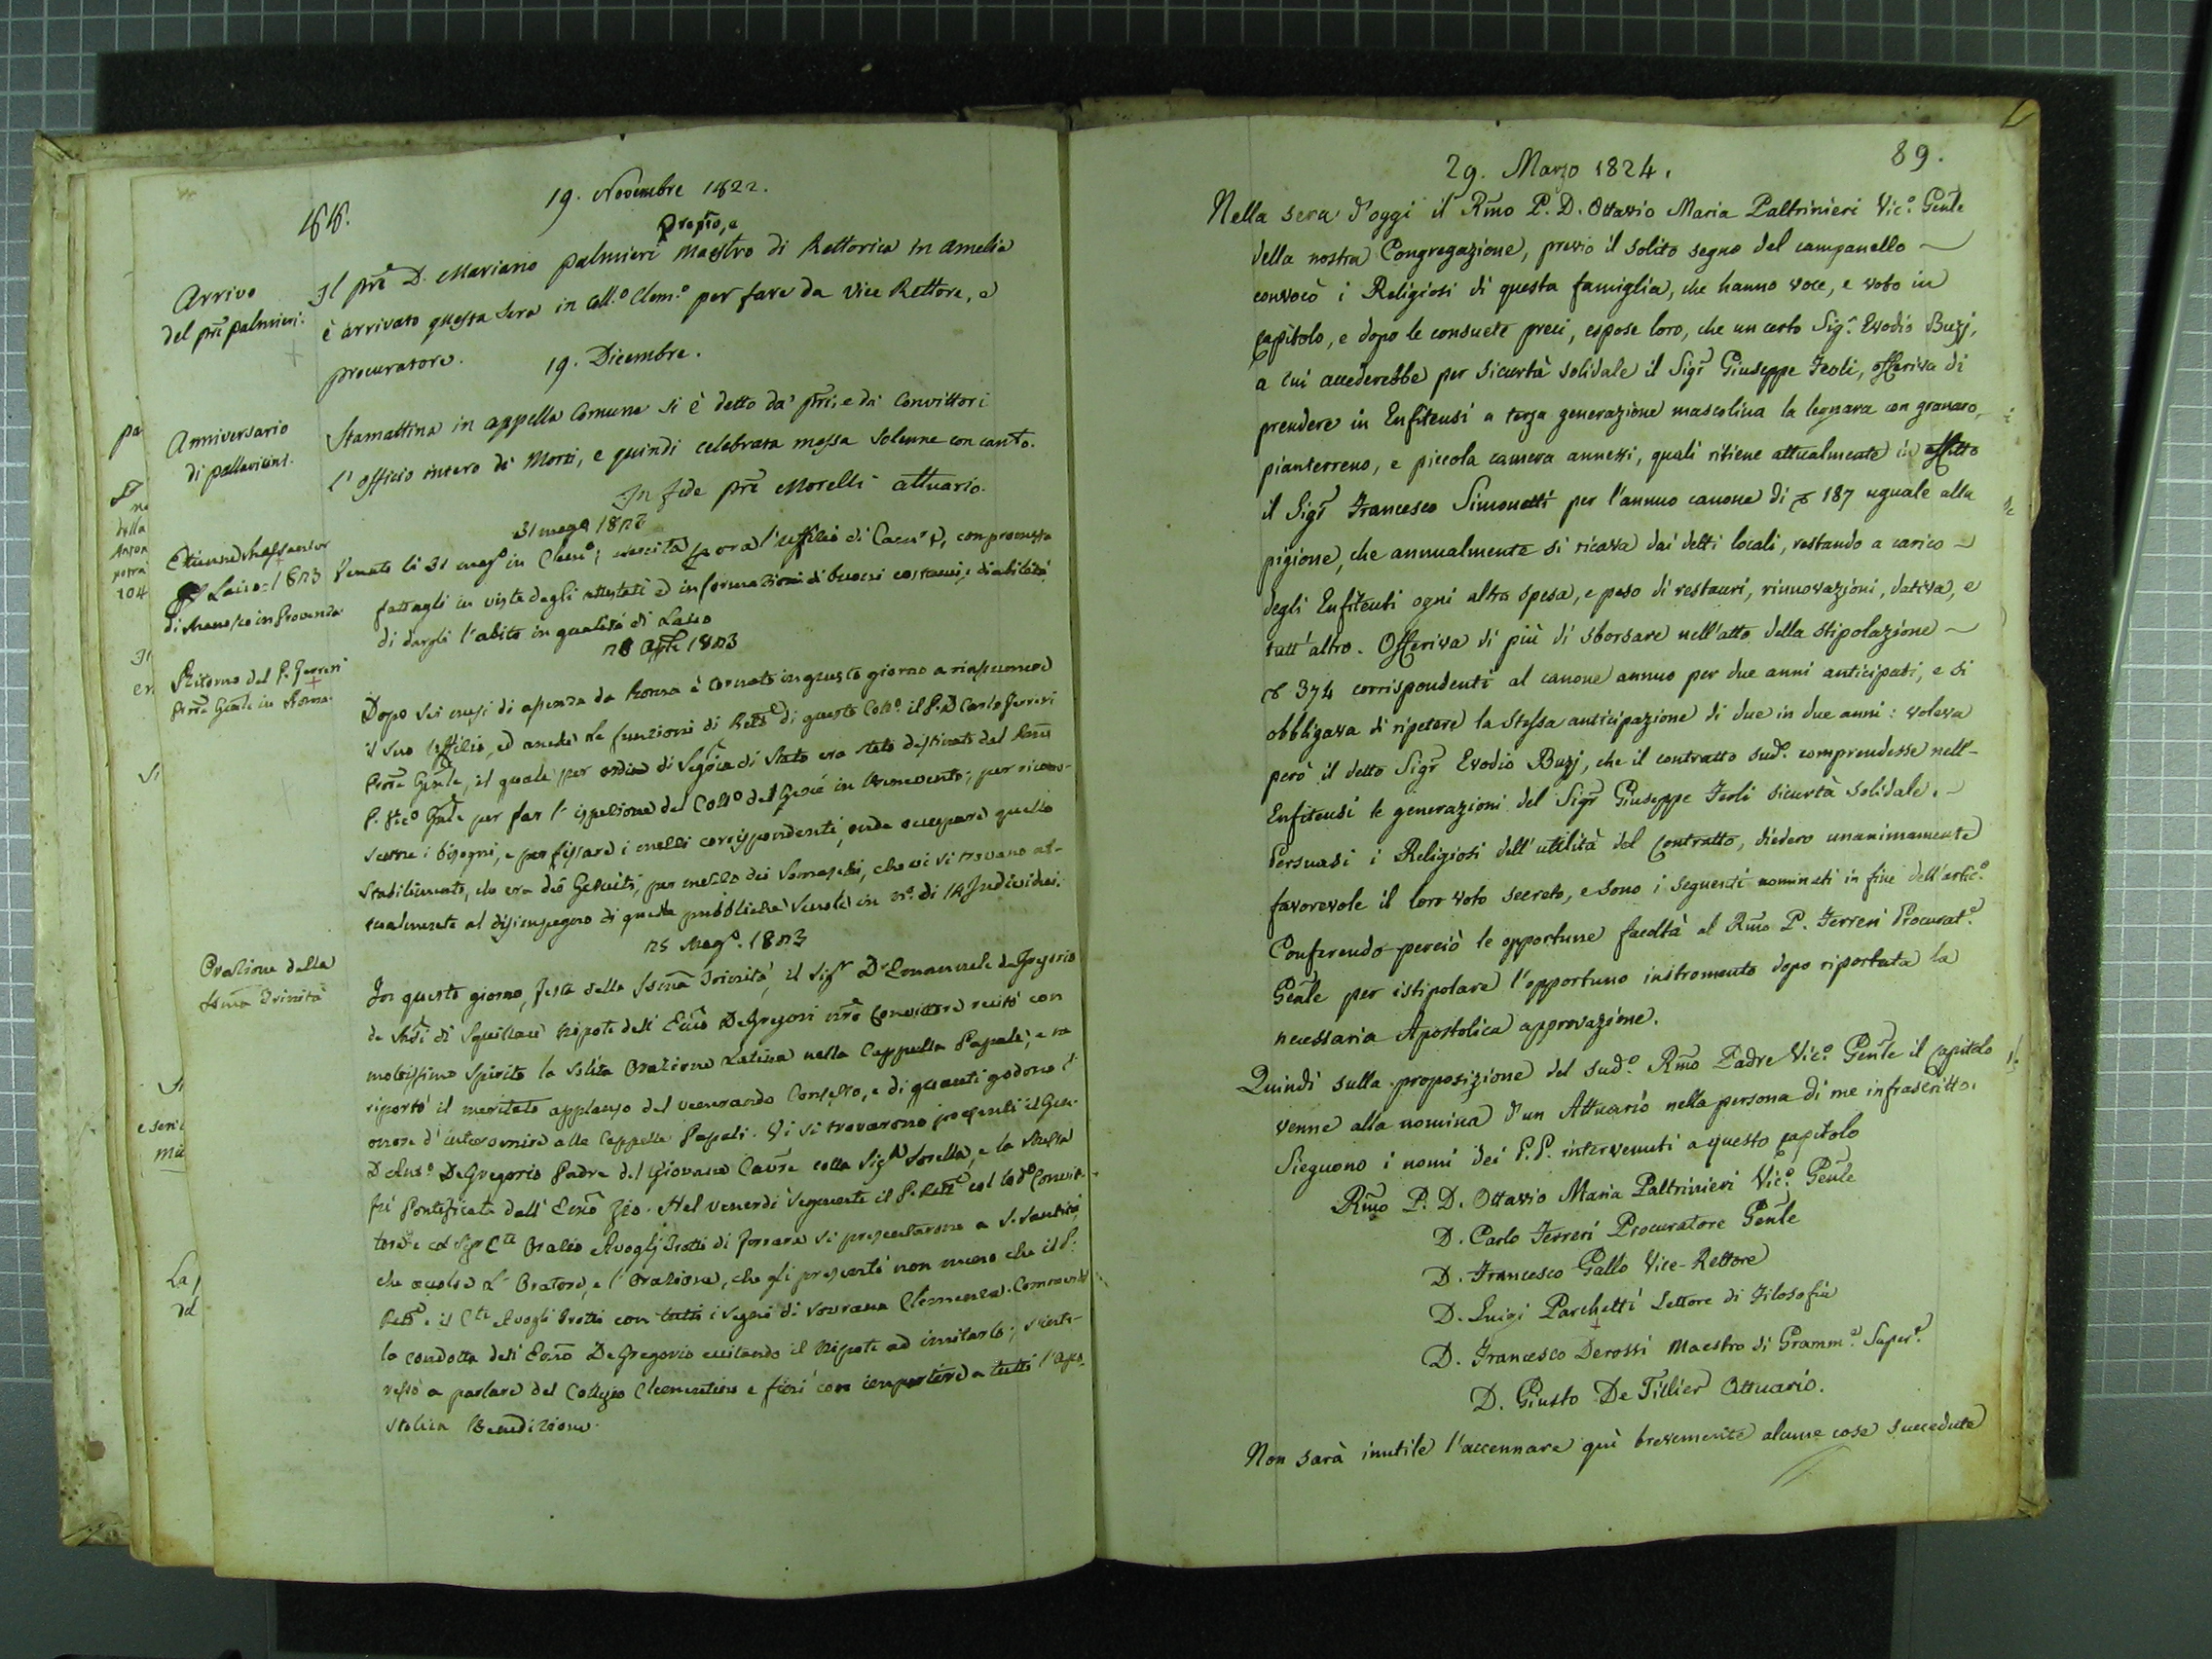 88.
19. Novembre 1822.
Prepto, e
Arrivo
del pre palmieri.
Il pre D. Mariano palmieri Maestro di Rettorica in Amelia
è arrivato questa sera in Coll.o Clem.o per fare da Vice Rettore, e
procuratore.
19. Dicembre.
Anniversario
di pallavicini.
Stamattina in appella Comune si è detto da' pri, e da' Convittori
l'officio intero di Morti, e quindi celebrata messa solenne con canto.
In fede pre Morelli attuario.
31 mago 1823
di Manosco in Provenza
Venuto li 31 mago in Clemo; esercita per ora l'uffizio di Camre, con promessa
fattagli in vista degli attestati ed informazioni di buoni costumi, e di abilità
di dargli l'abito in qualità di Laico
28 Aple 1823
Ritorno del P. Ferreri
Prore Genle in Roma.
Dopo sei mesi di assenza da Roma è tornato in questo giorno a riassumere
il suo Uffizio, ed anche le funzioni di Rettre di questo Collo. il P. D. Carlo Ferreri
Prore Genle, il quale per ordine di Segria di Stato era stato destinato dal Rmo
P. Vico Gnle per far l'ispezione del Collo del Gesù in Benevento; per ricono-
scerne i bisogni, e per fissare i mezzi corrispondenti, onde occupare quello
Stabilimento, che era dei Gesuiti, per mezzo dei Somaschi, che ivi si trovano at-
tualmente al disimpegno di quelle pubbliche Scuole in no. di 14 Individui.
25 Mago. 1823
Orazione della
Ssma Trinità
In questo giorno, festa della Ssma Trinità, il Sigr Dn Emmanuele de Gregorio
de Msi di Squillace Nipote dell'Emo DeGregori nro Convittore recitò con
moltissimo spirito la solita Orazione Latina nella Cappella Papale; e ne
riportò il meritato applauso del venerando Consesso, e di quanti godono l'
onore d'intervenire alle Cappelle Papali. Vi si trovarono presenti il Gen.
DeGregorio Padre del Giovane Cavre colla Siga Sorella, e la Messa
fù Pontificata dall'Emo Zio. Nel venerdì seguente il P. Rettre col lodo Convit-
tore e col Sigr Cte Orazio Avoglj Trotti di Ferrara si presentarono a S. Santità
che accolse l'Oratore, e l'Orazione, che gli presentò non meno che il P.
Rettre. il Cte Avogli Trotti con tutti i segni di sovrana Clemenza. Commendò
la condotta dell'Emo DeGregorio eccitando il Nipote ad imitarlo; s'inte-
ressò a parlare del Collegio Clementino e finì con impartire a tutti l'Apo-
stolica Benedizione.
89.
29. Marzo 1824.
Nella sera d'oggi il Rmo P. D. Ottavio Maria Paltrinieri Vic.o Genle
della nostra Congregazione, previo il solito segno del campanello
convocò i Religiosi di questa famiglia, che hanno voce, e voto in
Capitolo, e dopo le consuete preci, espose loro, che un certo Sig.r Evodio Buzj,
a cui accederebbe per sicurtà solidale il Sigr Giuseppe Feoli, offeriva di
prendere in Enfiteusi a terza generazione mascolina la legnara con granaro,
pianterreno, e piccola camera annessi, quali ritiene attualmente in affitto
il Sigr Francesco Simonetti per l'annuo canone di 187 uguale alla
pigione, che annualmente si ricava dai detti locali, restando a carico
degli Enfiteuti ogni altra spesa, e peso di restauri, rinnovazioni, dativa, e
tutt'altro. Offeriva di più di sborsare nell'atto della stipolazione
374 corrispondenti al canone annuo per due anni anticipati, e si
obbligava di ripetere la stessa anticipazione di due in due anni: voleva
però il detto Sigr Evodio Buzj, che il contratto sud.o comprendesse nell'-
Enfiteusi le generazioni del Sigr Giuseppe Feoli sicurtà solidale.
Persuasi i Religiosi dell'utilità del Contratto, diedero unanimamente
favorevole il loro voto secreto, e sono i seguenti nominati in fine dell'artic.o
Conferendo perciò le opportune facoltà al Rmo P. Ferreri Procurat.e
Genle per istipolare l'opportuno instromento dopo riportata la
necessaria Apostolica approvazione.
Quindi sulla proposizione del sud.o Rmo Padre Vic.o Genle il Capitolo
venne alla nomina d'un Attuario nella persona di me infrascritto.
Sieguono i nomi dei P.P. intervenuti a questo Capitolo
Rmo P. D. Ottavio Maria Paltrinieri Vic.o Genle
D. Carlo Ferreri Procuratore Genle
D. Francesco Gallo Vice-Rettore
D. Luigi Parchetti Lettore di Filosofia
D. Francesco Derossi Maestro di Gramm.a Super.e
D. Giusto De Tillier Attuario.
Non sarà inutile l'accennare quì brevemente alcune cose succedute